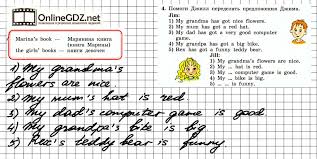 OnlineGDZ.net
Marina's book — Маринина книга
(книга Марины)
the girls' books — книги девочек
4. Помоги Джилл переделать предложения Джима.
Jim:
1) My grandma has got nice flowers.
2) My mum has got a red hat.
3) My dad has got a very good computer
game.
4) My grandpa has got a big bike.
5) Rex has got a funny teddy bear.
Jill:
1) My grandma's flowers are nice.
2) My ... hat is red.
3) My ... computer game is good.
4) My ... bike is big.
5) ... is funny.
1) My grandma's
flowers are nice.
2) My mum's hat is red.
3) My dad's computer game is good
4) My grandpa's bike is big
5) Rex's teddy bear is funny.